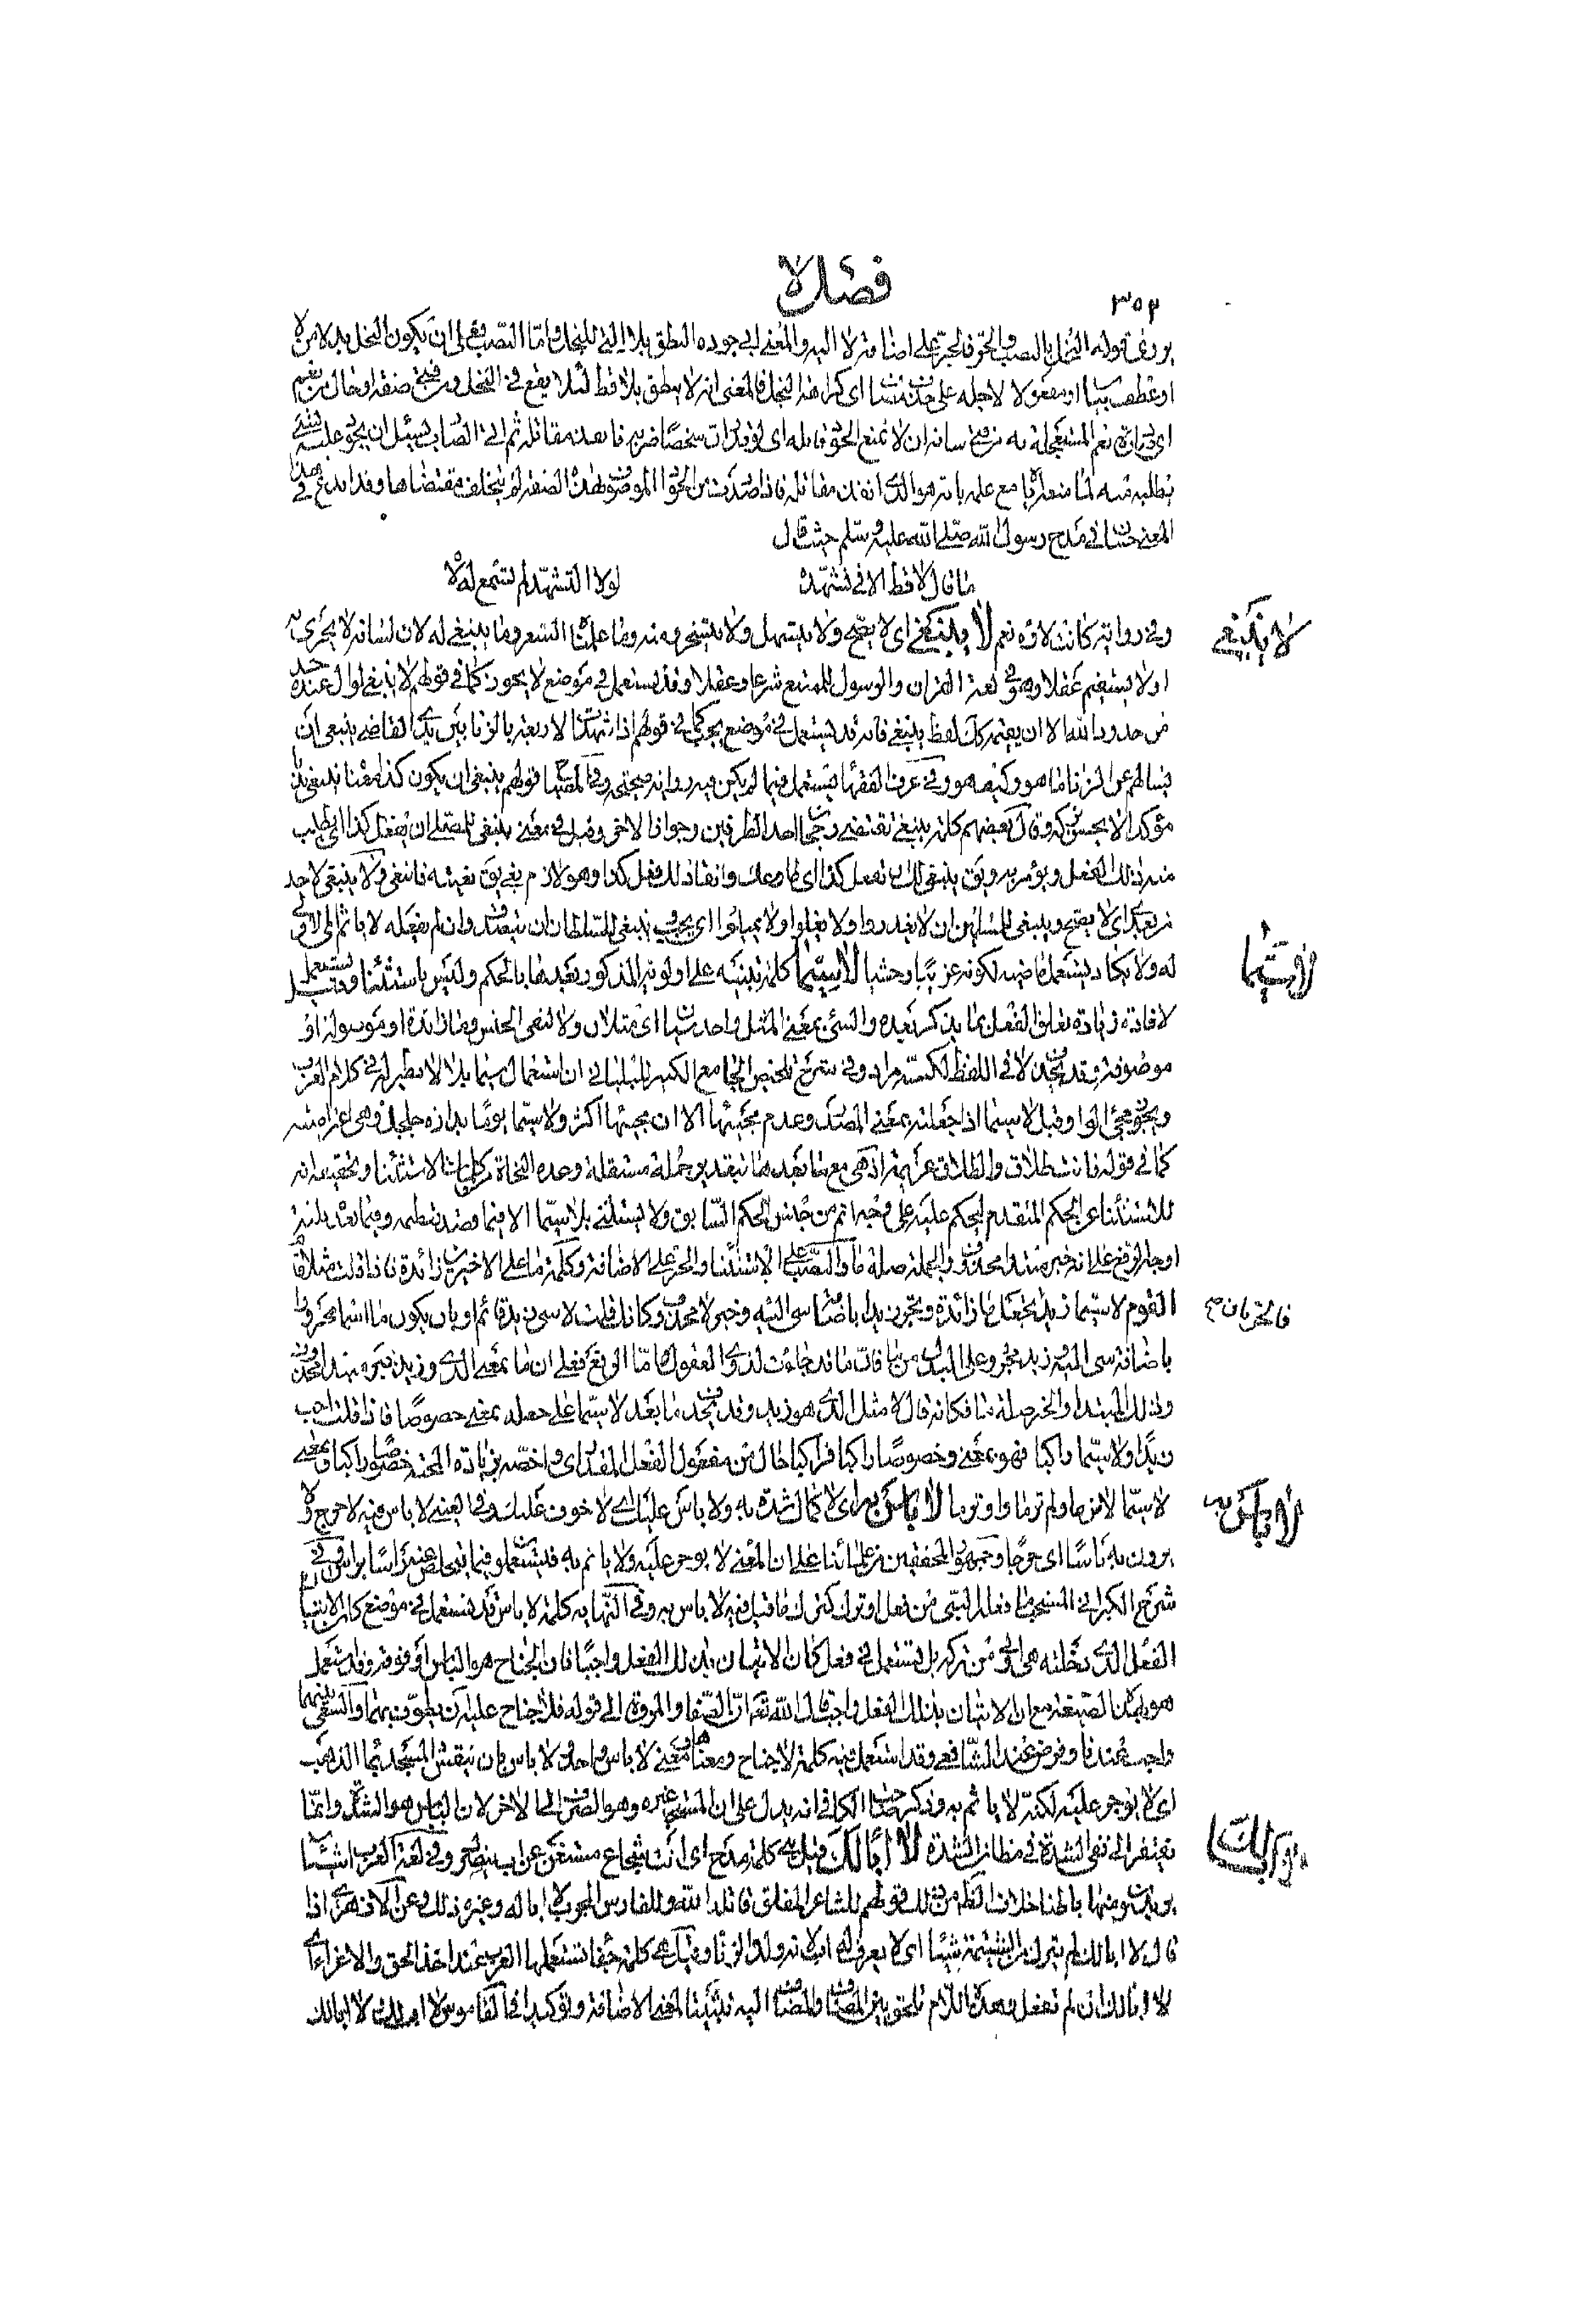 فصل لا
٣٥٢
يروى قوله البخل بالنصب والجر فالجر على اضافة لا اليه والمعنى ابى جوده النطق بلا التى للبخل واما النصب فعلى ان يكون البخل بدلا من لا
او عطف بيان او مفعولا لاجله على حذف مضاف اى كراهة البخل فالمعنى انه لا ينطق بلا قط لئلا يقع فى البخل
اى نعم المستعجلة به من فى شانه ان لا يمنع الجود قاتله اى لو قدرت شخصا ضربه فانفذ مقاتله ثم اتى الضارب يسئل ان يجود عليه بشئ
يطلبه منه لما منعه اياه مع علمه بانه هو الذى انفذ مقاتله فاذا صدرت من الجواد الموصوف بهذه الصفة لم يتخلف مقتضاها وقد هذا
المعنى حسان فى مدح رسول الله صلى الله عليه وسلم حيث قال
ما قال لا قط الا فى تشهده لولا التشهد لم تسمع له لا
وفى رواية كانت لاؤه نعم لا ينبغى اى لا يصح ولا يتسهل ولا يتسخر ومنه وما علمناه الشعر وما ينبغى له لان لسانه لا يجرى به
لا ينبغى
او لا يستقيم عقلا وهو فى لغة القران والرسول للممتنع شرعا وعقلا وقد يستعمل فى موضع لا يجوز كما فى قولهم لا ينبغى لوال عنده حد
من حدود الله الا ان يقيمه كذلك لفظ ينبغى فانه قد يستعمل فى موضع يجب كما فى قولهم اذا شهدت الاربعة بالزنا بين يدى القاضى ينبغى ان
يسالهم عن الزنا ما هو وكيف هو وفى عرف الفقهاء يستعمل فيما لم يكن فيه رواية صحيحة وفى المصباح قولهم ينبغى ان يكون كذا معناه ينبغى ندبا
مؤكدا لا يحسن تركه وقال بعضهم كلمة ينبغى تقتضى رجحان احد الطرفين وجواز الاخر وقيل فى معنى ينبغى للمصلى ان يفعل كذا اى يطلب
منه ذلك الفعل ويؤمر به ويق ينبغى لك ان تفعل كذا اى طاوعك وانقاد لك فعل كذا وهو لازم بغى يق بغيته فانبغى ولا ينبغى لاحد
من بعدى اى لا يصح وينبغى للمسلمين ان لا يغدروا ولا يغلوا ولا يمثلوا اى يجب وينبغى للسلطان ان يتصدق وان لم يفعله لا ياثم اى الاولى
له ولا يكاد يستعمل ماضيه لكونه غريبا وحشيا لا سيما كلمة تنبيه على اولوية المذكور بعدها بالحكم وليس باستثناء وقيل يستعمل
لا سيما
لافادة زيادة تعلق الفعل بما يذكر بعده والسئ بمعنى المثل واحد سيان اى مثلان ولا لنفى الجنس وما زائدة او موصولة او
موصوفة وقد تحذف لا فى اللفظ لكنه مراد وفى شرح تلخيص الجامع الكبير للبلبانى ان استعمال سيما بلا لا لا نظير له فى كلام العرب
ويجوز مجئ الواو قبل لا سيما اذا جعلته بمعنى المصدر وعدم مجيئها الا ان مجيئها اكثر ولا سيما يوما بدارة جلجل وهى اعتراضية
كما فى قوله فانت طلاق والطلاق عزيمة اذ هى مع ما بعدها بتقدير جملة مستقلة وعده النحاة من كلمات الاستثناء وتحقيقه انه
للاستثناء عن الحكم المتقدم ليحكم عليه على وجه اتم من جنس الحكم السابق ولا يستثنى بلا سيما الا فيما قصد تعظيمه وفيما بعده ثلثة
اوجه الرفع على انه خبر مبتدا محذوف والجملة صلة ما والنصب على الاستثناء والجر على الاضافة وكلمة ما على الاخيرين زائدة فاذا قلت مثلا قام
القوم لا سيما زيد فالجر بان تجعل ما زائدة وتجر زيدا باضافة سى اليه وخبر لا محذوف وكانك قلت لا سى زيد قائم او بان يكون ما اسما مجرورا
فالجر بان صح
باضافة سى اليه وزيد مجرور على البدل من ما فان ما قد جاءت لذوى العقول واما الرفع فعلى ان ما بمعنى الذى وزيد خبره مبتدا محذوف
وذلك المبتدا والخبر صلة ما فكانه قال لا مثل الذى هو زيد وقد يحذف ما بعد لا سيما على جعله بمعنى خصوصا فاذا قلت احب
زيدا ولا سيما راكبا فهو بمعنى وخصوصا راكبا فراكبا حال من مفعول الفعل المقدر اى واخصه بزيادة المحبة خصوصا راكبا وبمعنى
لا سيما لا ترما ولم ترما ولو ترما لا باس به اى لا كمال شدة به ولا باس عليك اى لا خوف عليك لا باس فيه لا حرج ولا
لا باس به
يرون به باسا اى حرجا وجمهور المحققين من علمائنا على ان المعنى لا يوجر عليه ولا ياثم به فيستعملونه فيما يتخلص عنه راسا براس وفى
شرح الكيدانى المستحب ما فعله النبى مرة وتركه اخرى ك ما قيل فيه لا باس به وفى النهاية كلمة لا باس قد تستعمل فى موضع كان الاتيان
الفعل الذى دخلته هى اولى من تركه بل تستعمل فى فعل كان الاتيان بذلك الفعل واجبا فان الجناح هو الباس او فوقه وقد استعمل
هو بهذه الصيغة مع ان الاتيان بذلك الفعل واجب قال الله تعه ان الصفا والمروة الى قوله فلا جناح عليه ان يطوف بهما والسعى بينهما
واجب عندنا وفرض عند الشافعى وقد استعمل فيه كلمة لا جناح ومعناها ومعنى لا باس واحد ولا باس بان ينقش المسجد بماء الذهب
اى لا يوجر عليه لكنه لا ياثم به وذكر صاحب الكافى انه يدل على ان المستحب غيره وهو الصرف الى الاخر لان الباس هو الشدة وانما
يفتقر الى نفى الشدة فى مظان الشدة لا ابا لك قيل هى كلمة مدح اى انت شجاع مستغن عن اب ينصرك وفى لغة العرب اشياء
لا ابا لك
يريدون منها باطنا خلاف الظاهر من ذلك قولهم للشاعر المفلق قاتله الله وللفارس المجرب لا ابا له وغير ذلك وعن الازهرى اذا
قال لا ابا لك لم يترك من الشتيمة شيئا اى لا يعرف له اب لانه ولد الزنا وقيل هى كلمة جفاء تستعملها العرب عند اخذ الحق والاغراء اى
لا ابا لك ان لم تفعل وهذه اللام تلحق بين المضاف والمضاف اليه تثبيتا لمعنى الاضافة وتوكيدا وفى القاموس لا اب لك لا ابا لك